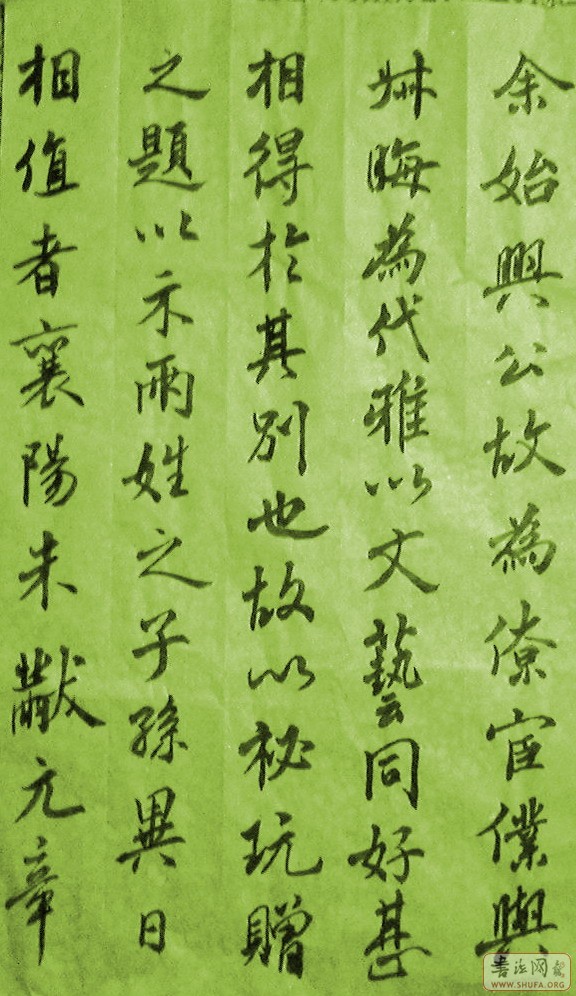 余始興公故為僚宦僕與
叔晦為代雅以文藝同好甚
相得於其別也故以秘玩贈
之題以示兩姓之子孫異日
相值者襄陽米黻元章
書法网
WWW.SHUFA.ORG